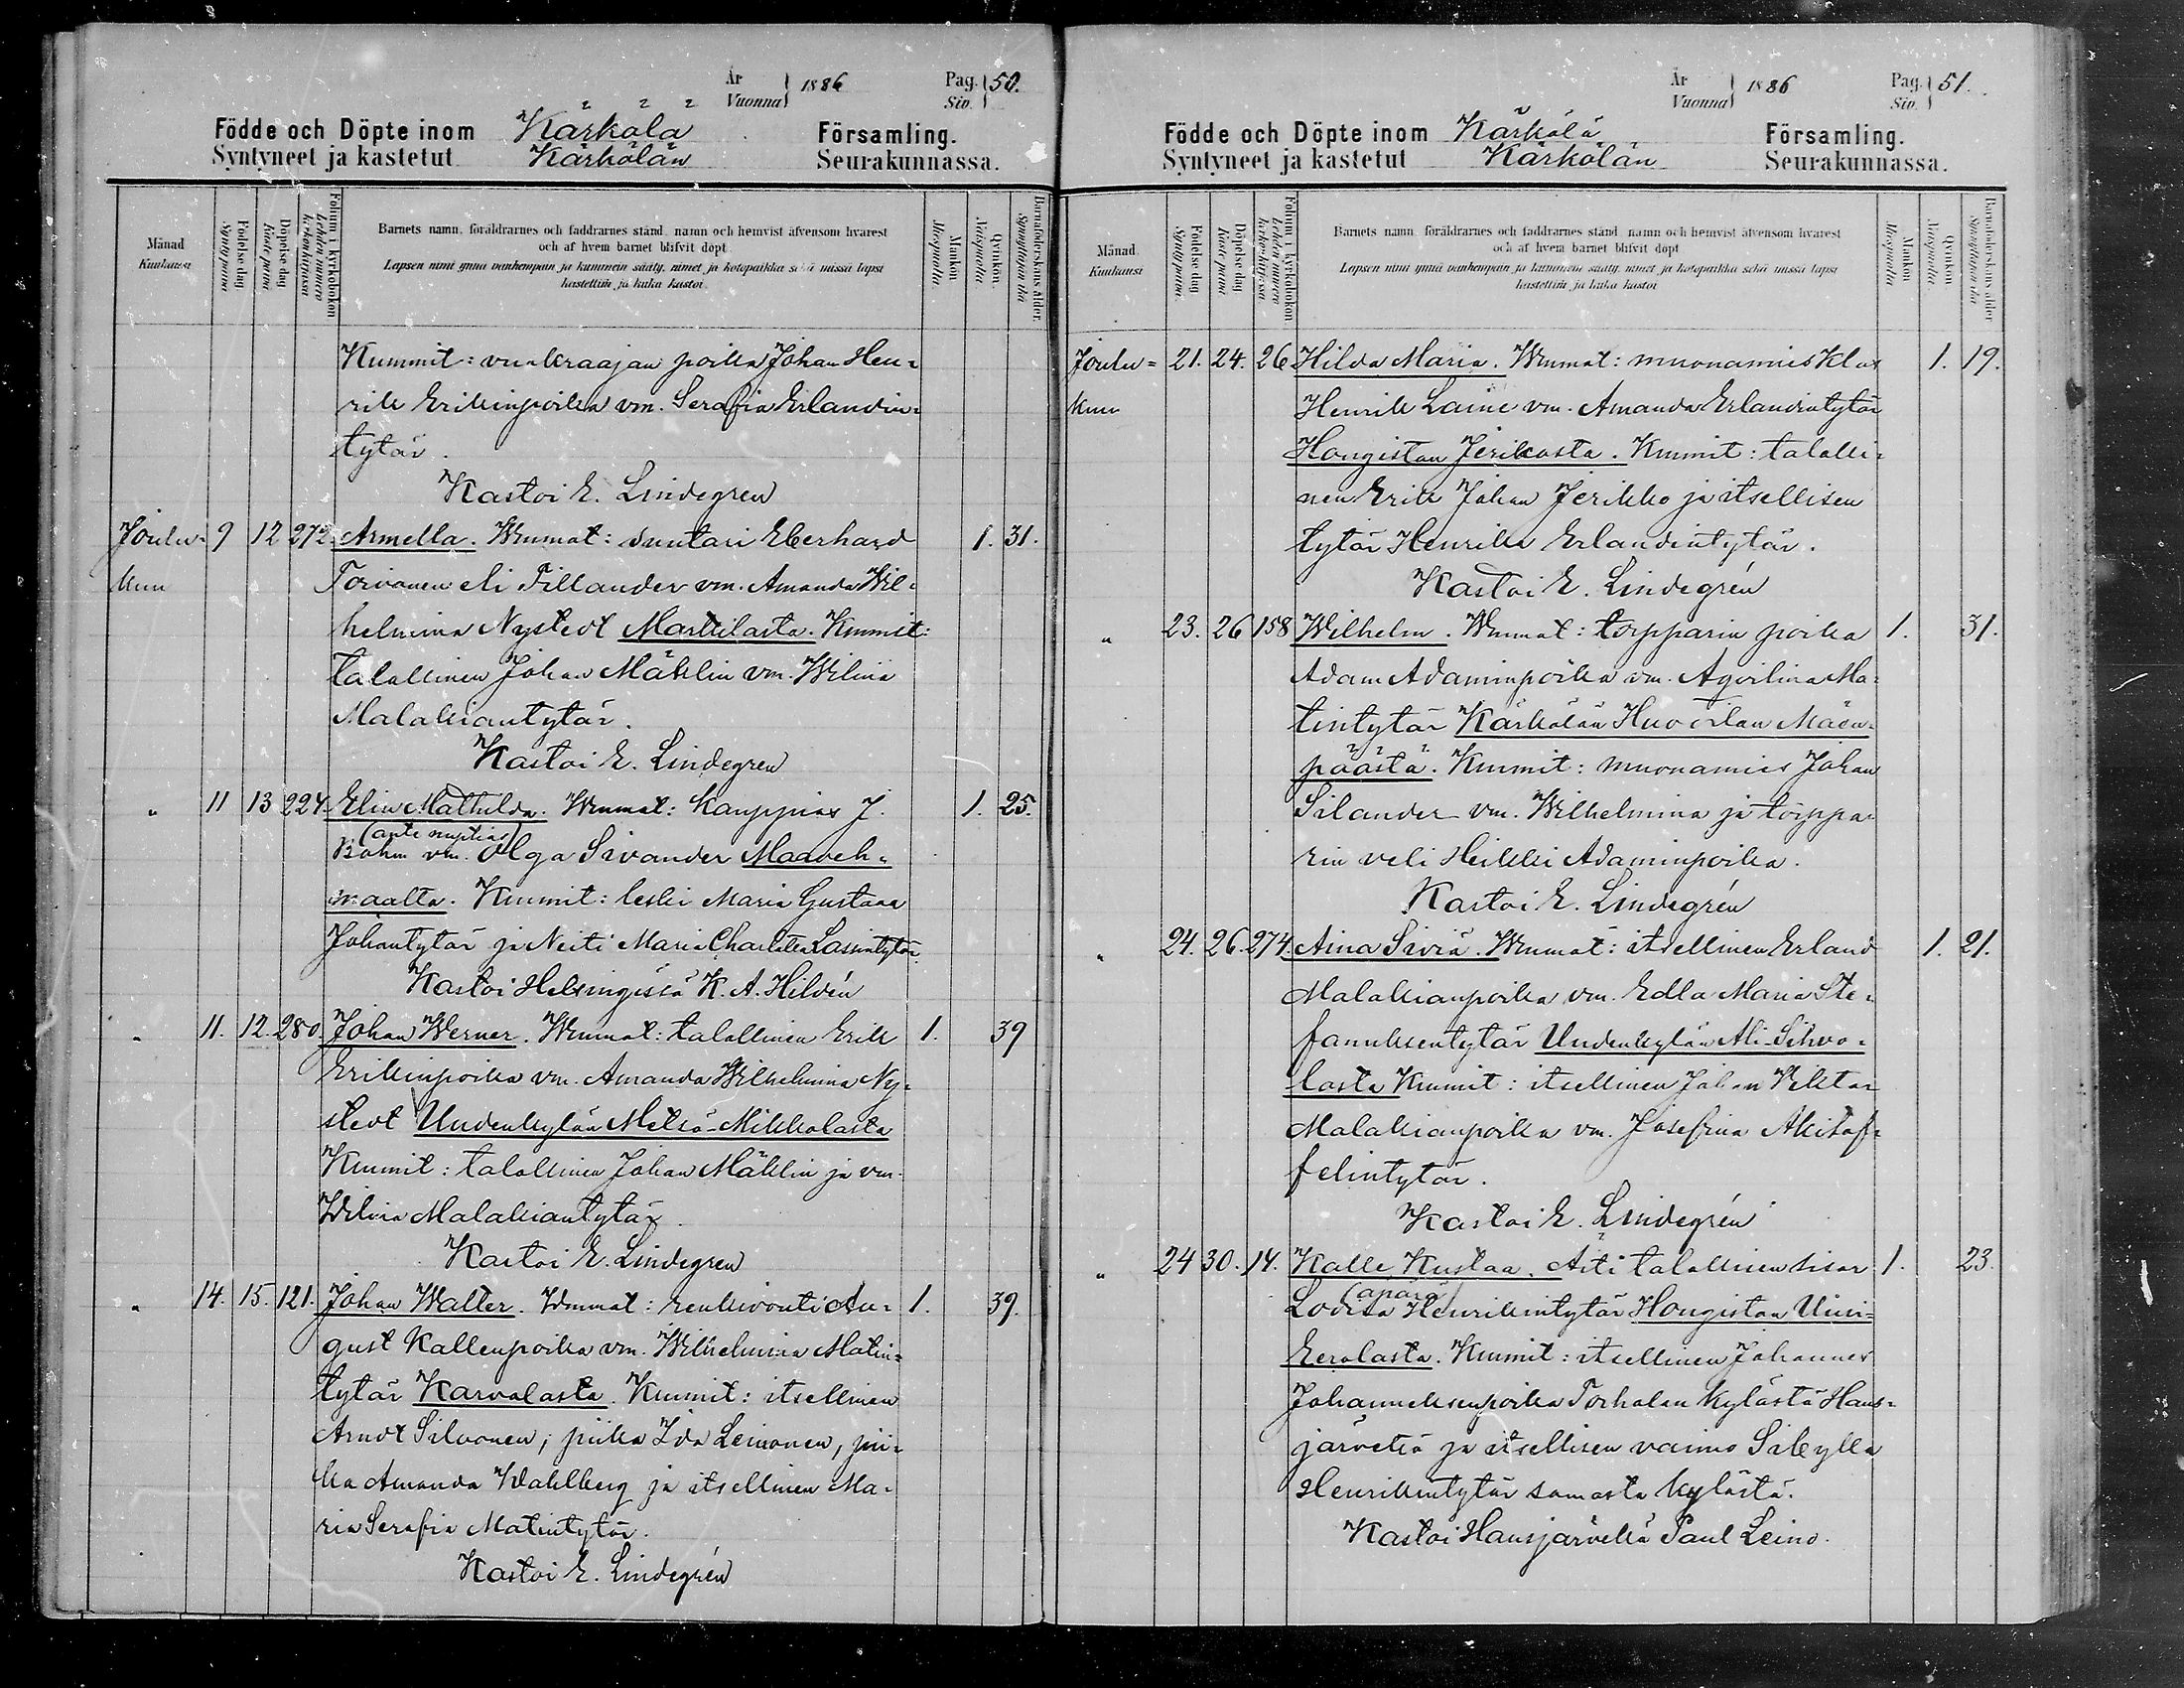 År
Vuonna } 1886 Pag. Siv. } 50.
Födde och Döpte inom Kärkölä Församling.
Syntyneet ja kastetut Kärkölän Seurakunnassa.
Månad Kuukausi
Födelse dag Synty päivä
Döpelse dag Kaste päivä
Folium i kyrkoboken Lehden numero kirkonkirjassa
Barnets namn, föräldrarnes och faddrarnes stånd, namn och hemvist äfvensom hvarest
och af hvem barnet blifvit döpt
Lapsen nimi ynnä vanhempain ja kummein sääty, nimet ja kotopaikka sekä missä lapsi
kastettiin ja kuka kastoi
Mankön Miespuolia
Qvinkön Vaispuolia
Barnaföderskans ålder Synnyttäjän ikä
Kummit: vuokraajan poika Johan Hen=
rik Erikinpoika vm. Serafia Erlandin=
tytär.
Kastoi E. Lindegren
Joulu= 9 12 272. Armella. Wmmat: suutari Eberhard 1. 31.
kuu Toivonen eli Tillander vm. Amanda Wil=
helmina Nystedt Markkilasta. Kummit:
talollinen Johan Mäklin vm. Wilma
Malakiantytär.
Kastoi E. Lindegren
" 11 13 224. Elin Mathilda. Wmmat: Kauppias J. 1. 25.
(ante nuptias)
Böhm vm. Olga Sivander Maaveh=
maalta. Kummit: leski Maria Gustava
Johantytär ja Neiti Maria Charlotta Lassintytär.
Kastoi Helsingissä K. A. Hildén
" 11. 12. 280. Johan Werner. Wmmat: talollinen Erik 1. 39
Erikinpoika vm. Amanda Wilhelmina Ny=
stedt Uudenkylän Metsä-Mikkolasta
Kummit: talollinen Johan Mäklin ja vm.
Wilma Malakiantytär.
Kastoi E. Lindegren
" 14. 15. 121. Johan Walter. Wmmat: renkivouti Au= 1. 39.
gust Kallenpoika vm. Wilhelmina Matin=
tytär Karvalasta. Kummit: itsellinen
Arndt Silvonen; piika Ida Leinonen, pii=
ka Amanda Wahlberg ja itsellinen Ma=
ria Serafia Matintytär.
Kastoi E. Lindegrén
År
Vuonna } 1886 Pag. Siv. } 51.
Födde och Döpte inom Kärkölä Församling.
Syntyneet ja kastetut Kärkölän Seurakunnassa.
Månad Kuukausi
Födelse dag Synty päivä
Döpelse dag Kaste päivä
Folium i kyrkoboken Lehden numero kirkonkirjassa
Barnets namn, föräldrarnes och faddrarnes stånd, namn och hemvist äfvensom hvarest
och af hvem barnet blifvit döpt
Lapsen nimi ynnä vanhempain ja kummein sääty, nimet ja kotopaikka sekä missä lapsi
kastettiin ja kuka kastoi
Mankön Miespuolia
Qvinkön Vaispuolia
Barnaföderskans ålder Synnyttäjän ikä
Joulu= 21. 24. 26 Hilda Maria. Wmmat: muonamies Klas 1. 19.
kuu Henrik Laine vm. Amanda Erlandintytär
Hongiston Jerikosta. Kummit: talolli=
nen Erik Johan Jerikko ja itsellisen
tytär Henrika Erlandintytär.
Kastoi E. Lindegrén
" 23. 26 158 Wilhelm. Wmmat: torpparin poika 1. 31.
Adam Adaminpoika vm. Agvilina Ma=
tintytär Kärkölän Huovilan Mäen=
päästä. Kummit: muonamies Johan
Silander vm. Wilhelmina ja torppa=
rin veli Heikki Adaminpoika.
Kastoi E. Lindegrén
" 24. 26. 274. Aina Siviä. Wmmat: itsellinen Erland 1. 21.
Malakianpoika vm. Edla Maria Ste=
fanuksentytär Uudenkylän Ali-Sihvo=
lasta Kummit: itsellinen Johan Viktor
Malakianpoika vm. Josefina Akitof=
felintytär.
Kastoi E. Lindegrén
" 24 30. 14. Kalle Kustaa. Äiti talollinen sisar 1. 23.
(äpärä)
Lovisa Henrikintytär Hongiston Uusi=
Eerolasta. Kummit: itsellinen Johannes
Johanneksenpoika Torholan kylästä Haus=
järveltä ja itsellisen vaimo Sibylla
Henrikintytär samasta kylästä.
Kastoi Hausjärvellä Paul Leino.